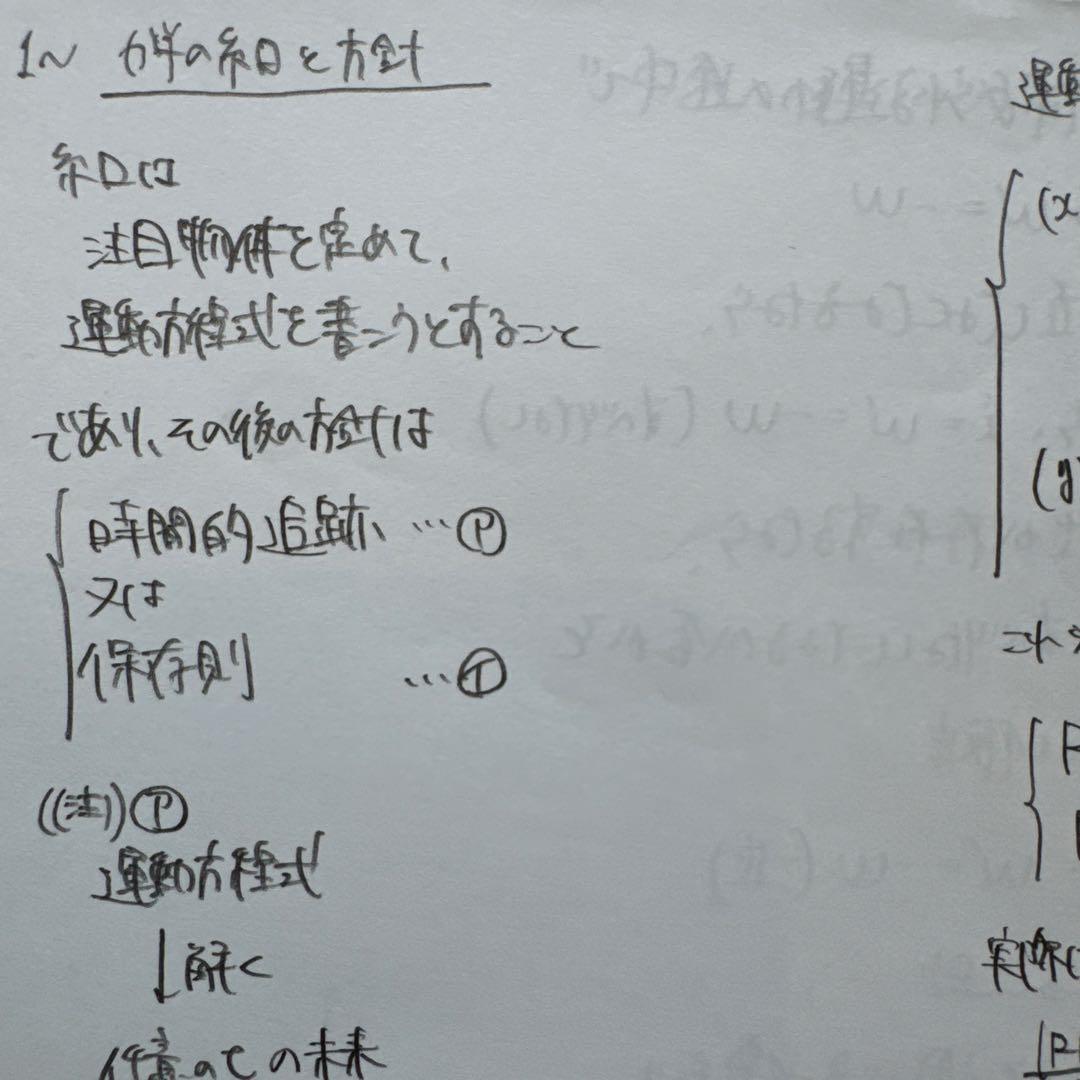 1~ 力学の糸口と方針
糸口は
注目物体を定めて、
運動方程式を書こうとすること
であり、その後の方針は
時間的追跡 … ㋐
又は
保存則 … ㋑
((注)) ㋐
運動方程式
↓解く
任意のtの未来
運動
(x
(y
これ
実際に